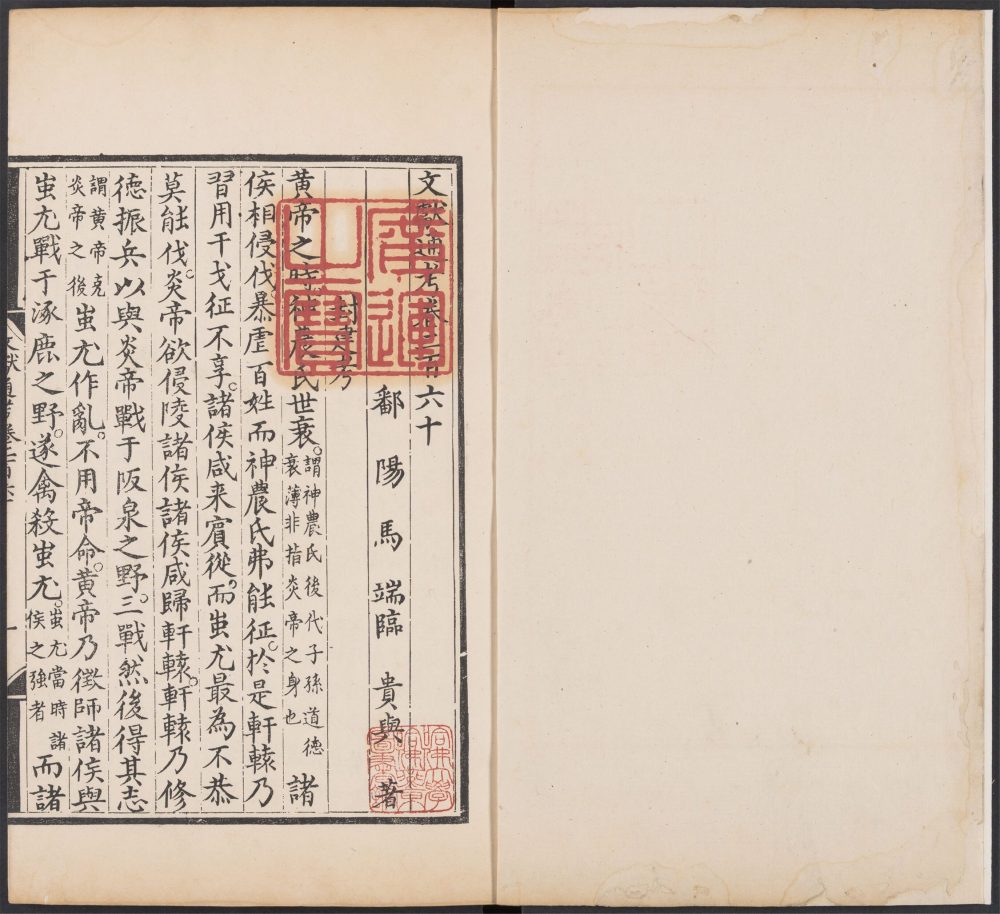 文獻通考卷二百六十
鄱陽馬端臨貴與著
封建考
黃帝之時神農氏世衰。謂神農氏後代子孫道德衰薄非指炎帝之身也諸
侯相侵伐。暴虐百姓而神農氏弗能征。於是軒轅乃
習用干戈征不享。諸侯咸来賓從。而蚩尤最為不恭
莫能伐。炎帝欲侵陵諸侯諸侯咸歸軒轅。軒轅乃修
德振兵以與炎帝戰于阪泉之野。三戰然後得其志
謂黃帝克炎帝之後蚩尤作亂。不用帝命。黃帝乃徵師諸侯與
蚩尤戰于涿鹿之野。遂禽殺蚩尤。蚩尤當時諸侯之強者而諸
文獻通考卷二百六十
一
廣運之寶